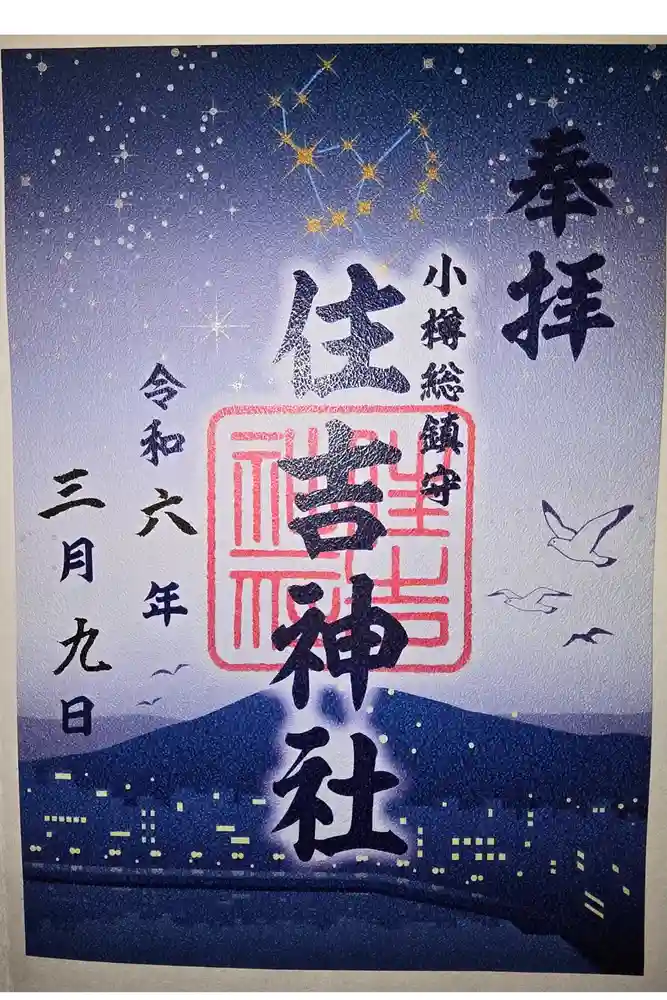 奉拝
小樽総鎮守
住吉神社
住吉
神社
令和六年
三月九日